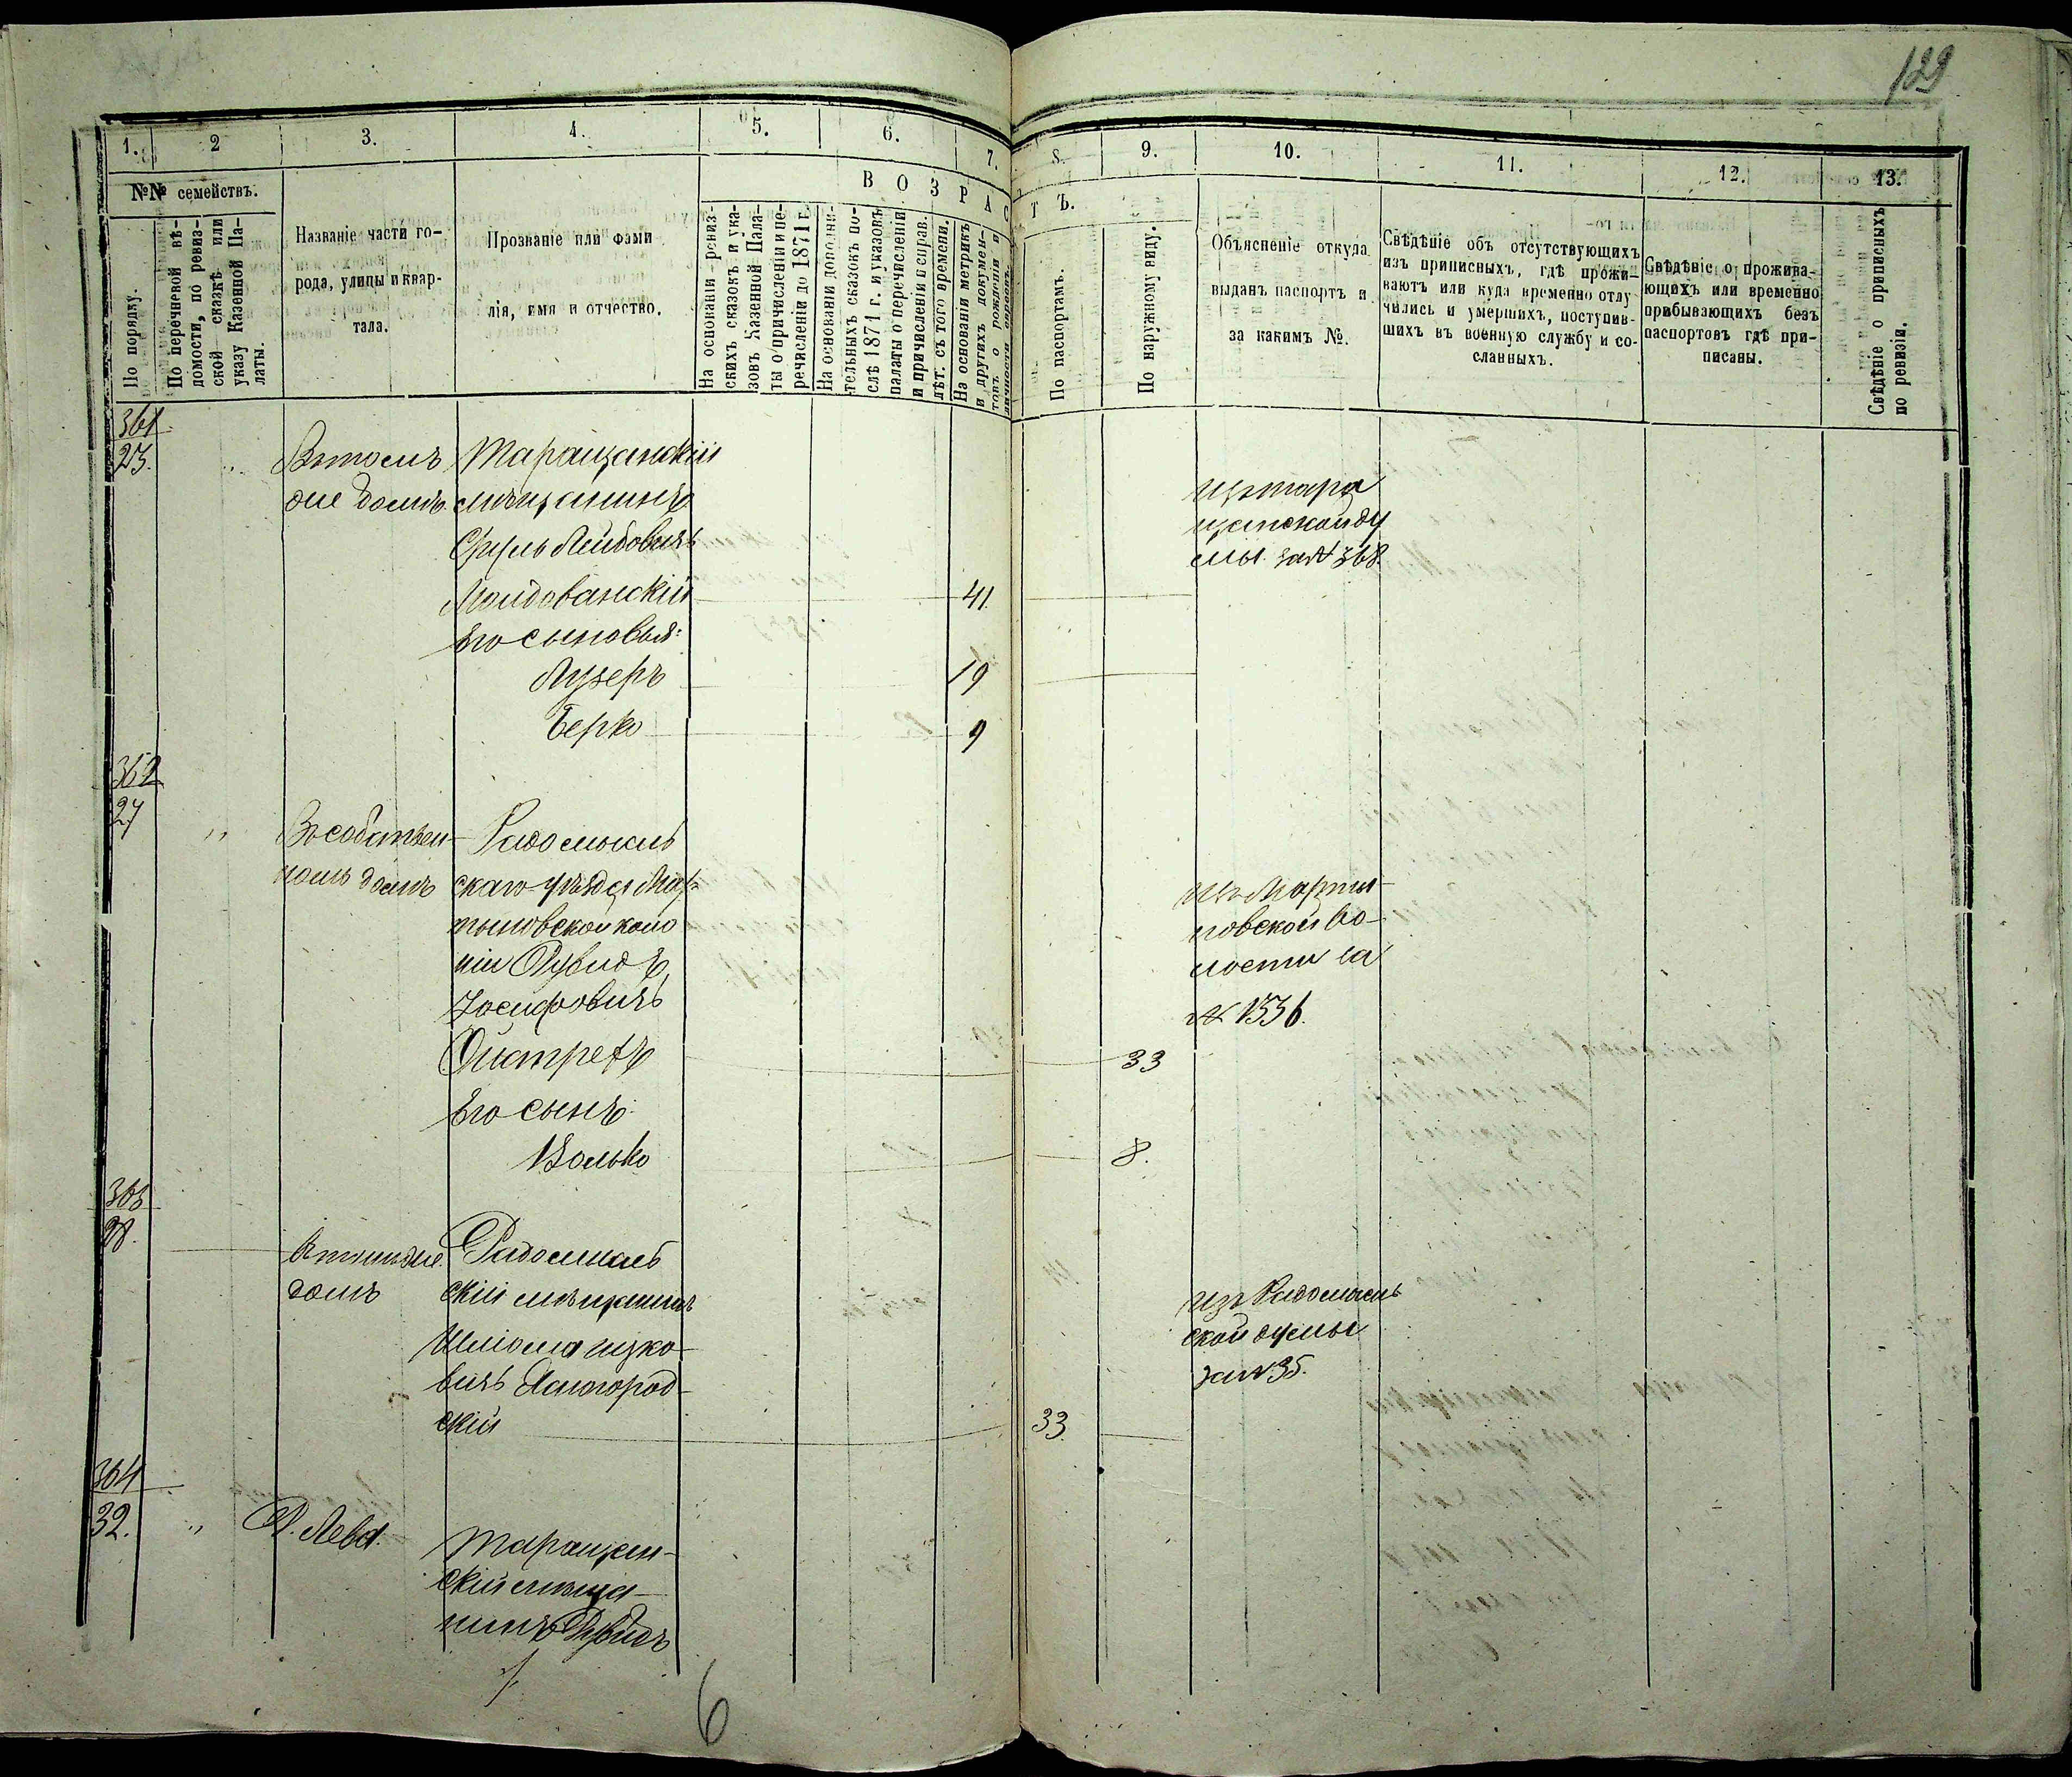 129
1.
2
3.
4.
5.
6.
7.
8.
9.
10.
11.
12.
13.
№№ семействъ.
В О З Р А С Т Ъ.
По порядку.
По перечневой вѣ-
домости, по ревиз-
ской сказкѣ или
указу Казенной Па-
латы.
Названіе части го-
рода, улицы и квар-
тала.
Прозваніе или фами
лія, имя и отчество.
На основаніи ревиз-
скихъ сказокъ и ука-
зовъ Казенной Пала-
ты о причисленіи и пе-
речисленіи до 1871 г.
На основаніи дополни-
тельныхъ сказокъ по-
слѣ 1871 г. и указовъ
палаты о перечисленіи
и причисленіи и справ.
лѣт. съ того времени.
На основаніи метрикъ
и другихъ докумен-
товъ о рожденіи и
По паспортамъ.
По наружному виду.
Объясненіе откуда
выданъ паспортъ и
за какимъ №.
Свѣдѣніе объ отсутствующихъ
изъ приписныхъ, гдѣ прожи-
ваютъ или куда временно отлу
чились и умершихъ, поступив-
шихъ въ военную службу и со-
сланныхъ.
Свѣдѣніе о прожива-
ющихъ или временно
прибывающихъ безъ
паспортовъ гдѣ при-
писаны.
Свѣдѣніе о приписныхъ
по ревизіи.
361
23.
Вътомъ
же домѣ.
Таращанскій
мѣщанинъ
Сруль Лейбовичъ
Молдованскій 41.
Его сыновья:
Лузеръ 19
Берко 9
Изъ тара
щанской ду
мы за № 368.
362
27
Въ собствен-
номъ домѣ
Радомысль
скаго уѣзда Мар
тыновской коло
ніи Рувидъ
Іосифовичъ
Ойстрехъ 33
Его сынъ:
Волько 8.
Изъ Марты-
новской во-
лости за
№ 1336.
363
28.
Втомъ же
домѣ
Радомысль
скій мѣщанинъ
Шліома Ицко-
вичъ Ясногород-
скій 33
Изъ Радомысль
ской думы
за № 35.
364
32.
Д. Лева.
Таращан-
скій мѣща-
нинъ
6